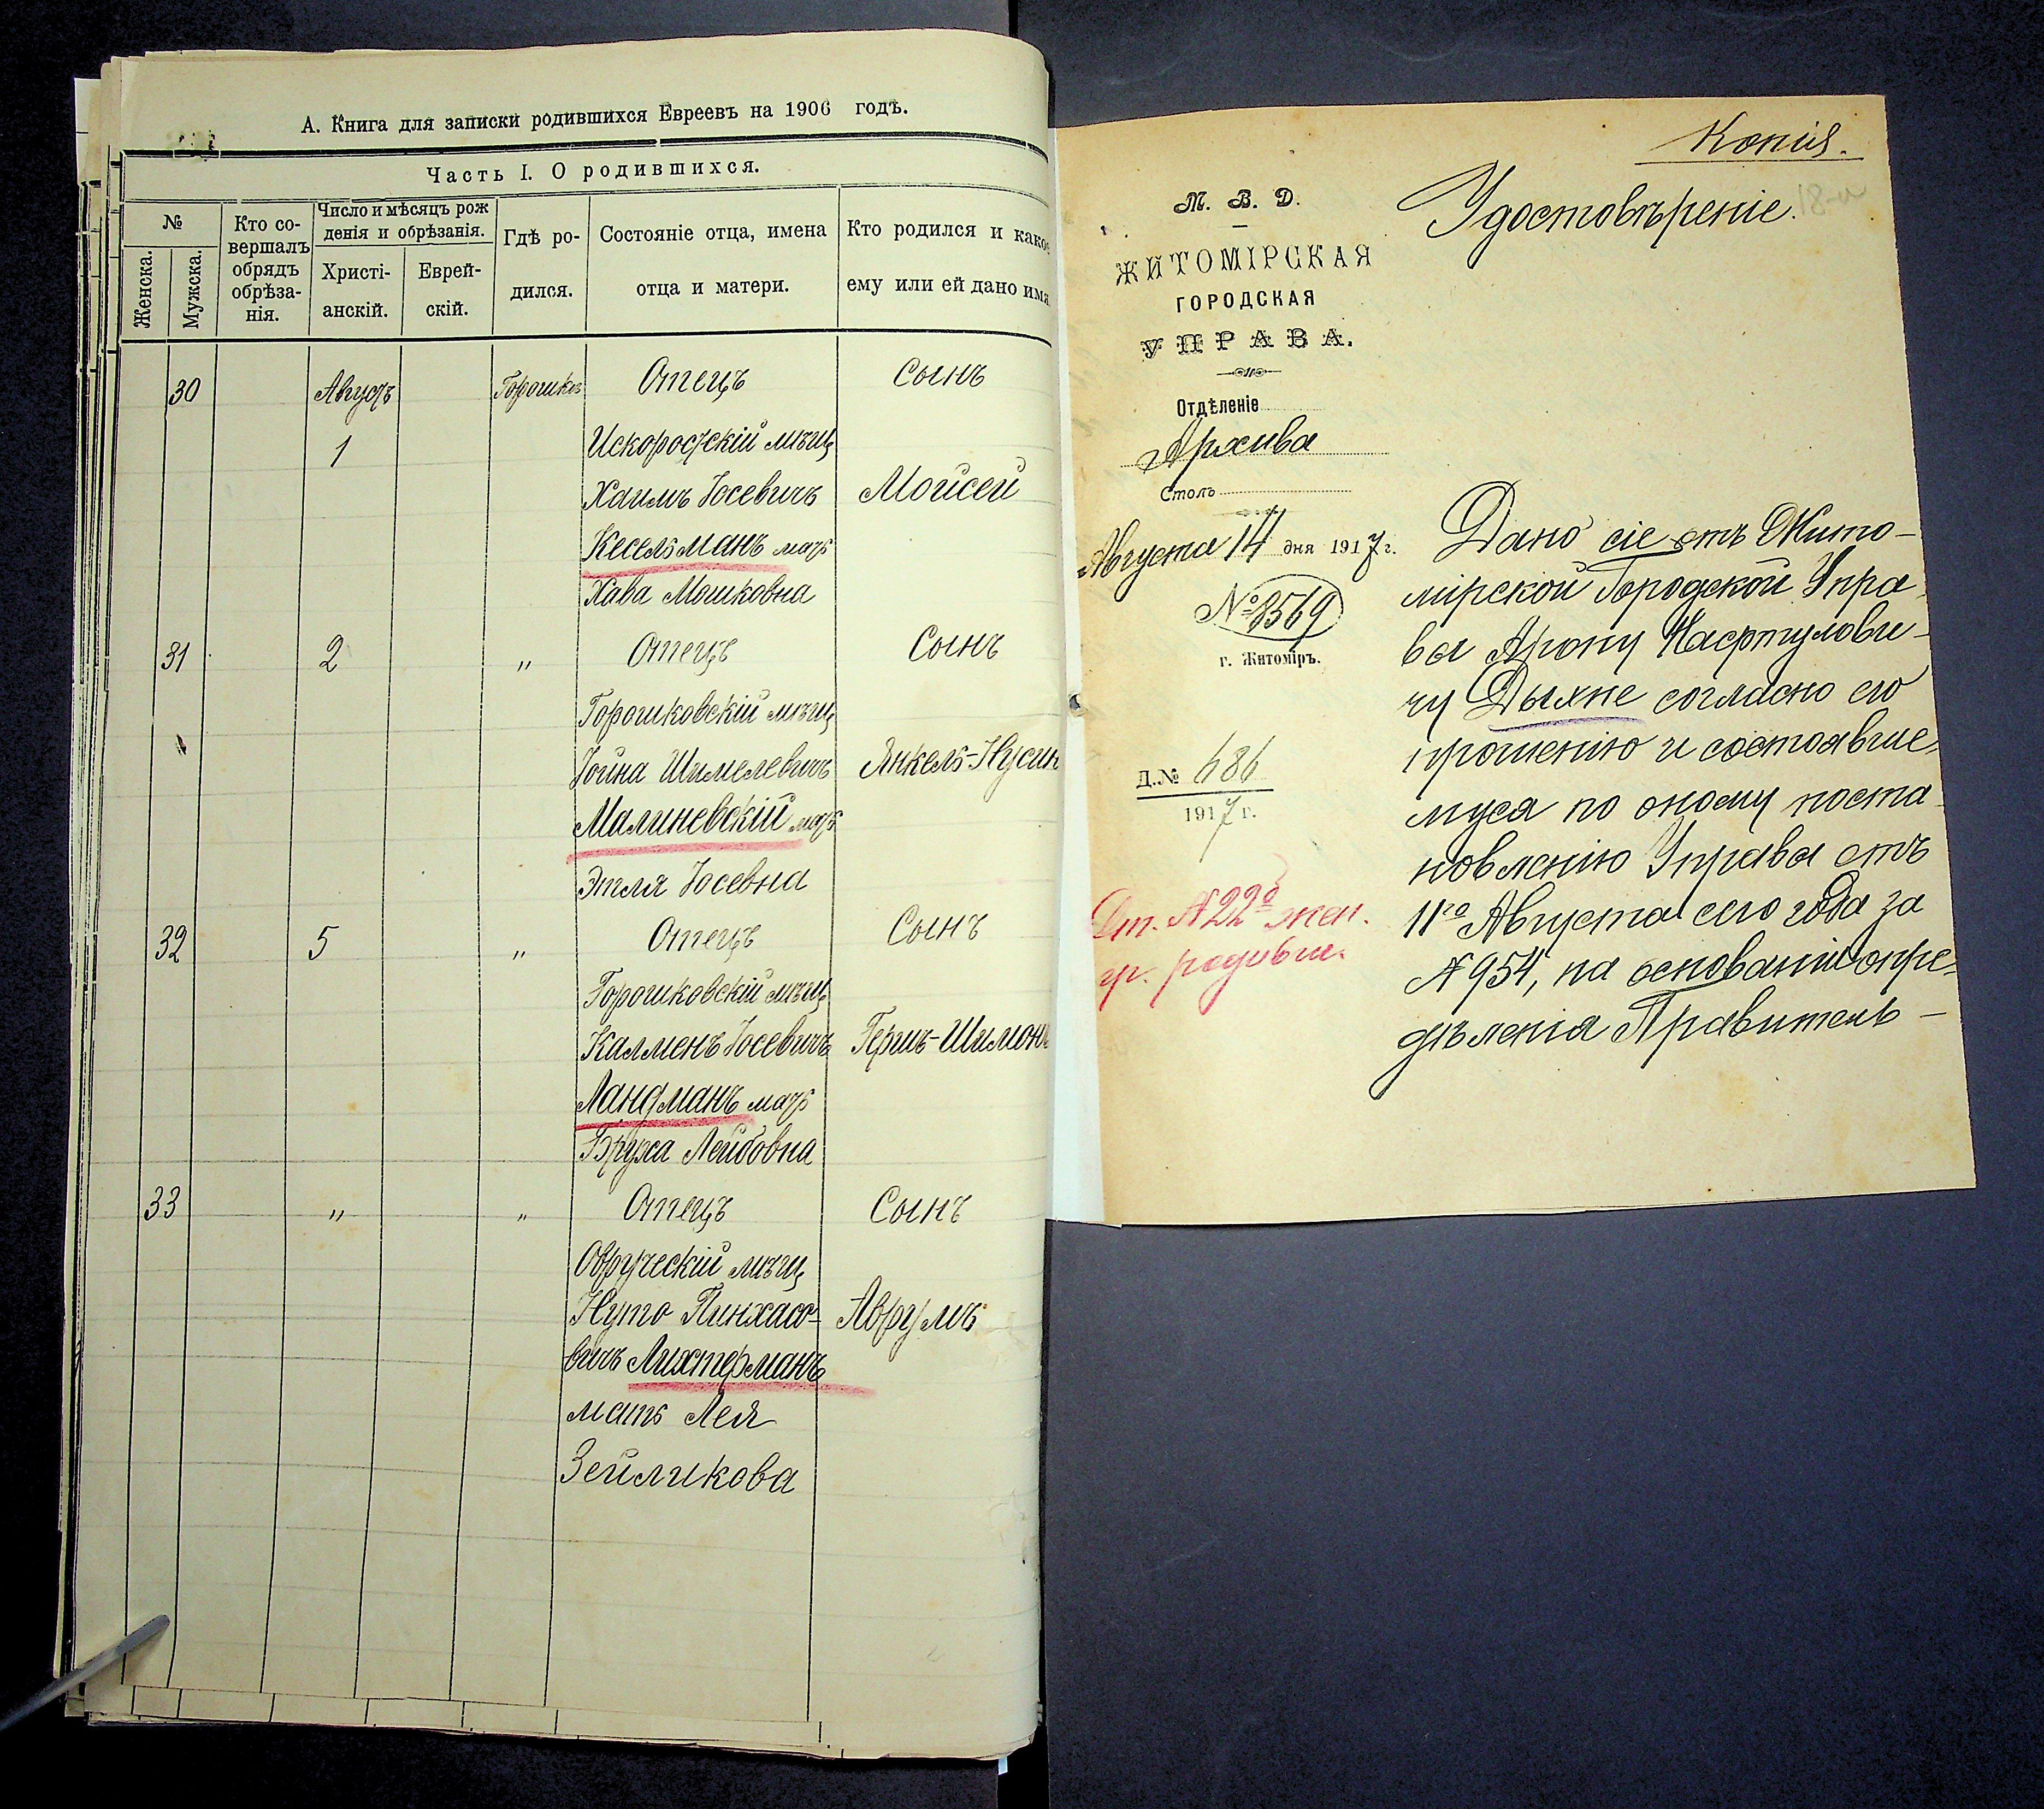 А. Книга для записки родившихся Евреевъ на 1906 годъ.
Часть I. О родившихся.
№
Женска.
Мужска.
Кто со-
вершалъ
обрядъ
обрѣза-
нія.
Число и мѣсяцъ рож
денія и обрѣзанія.
Христі-
анскій.
Еврей-
скій.
Гдѣ ро-
дился.
Состояніе отца, имена
отца и матери.
Кто родился и како
ему или ей дано имя
30 Августъ Горошкъ Отецъ Сынъ
1 Искоростскій мѣщ
Хаимъ Іосевичъ Мойсей
Кесельманъ мать
Хава Мошковна
31 2 " Отецъ Сынъ
Горошковскій мѣщ
Іойна Шмелевичъ Янкель-Нусин
Малиневскій мать
Этля Іосевна
32 5 " Отецъ Сынъ
Горошковскій мѣщ
Калменъ Іосевичъ Гершъ-Шимонъ
Ландманъ мать
Бруха Лейбовна
33 " " Отецъ Сынъ
Овруческій мѣщ
Нуто Пинхасо- Аврумъ
вичъ Лихтерманъ
мать Лея
Зейликова
Копія.
М. В. Д.
ЖИТОМІРСКАЯ
ГОРОДСКАЯ
УПРАВА.
Отдѣленіе
Архива
Столъ
Августа 14 дня 1917 г.
№ 8569
г. Житоміръ.
Д. № 686
1917 г.
Ст. №22º жен.
гр. родивш.
Удостовѣреніе. 18-и
Дано сіе отъ Жито-
мірской Городской Упра
вы Арону Нафтулови-
чу Дыхне согласно его
прошенію и состоявше-
муся по оному поста
новленію Управы отъ
11го Августа сего года за
№954, на основаніи опре-
дѣленія Правитель-